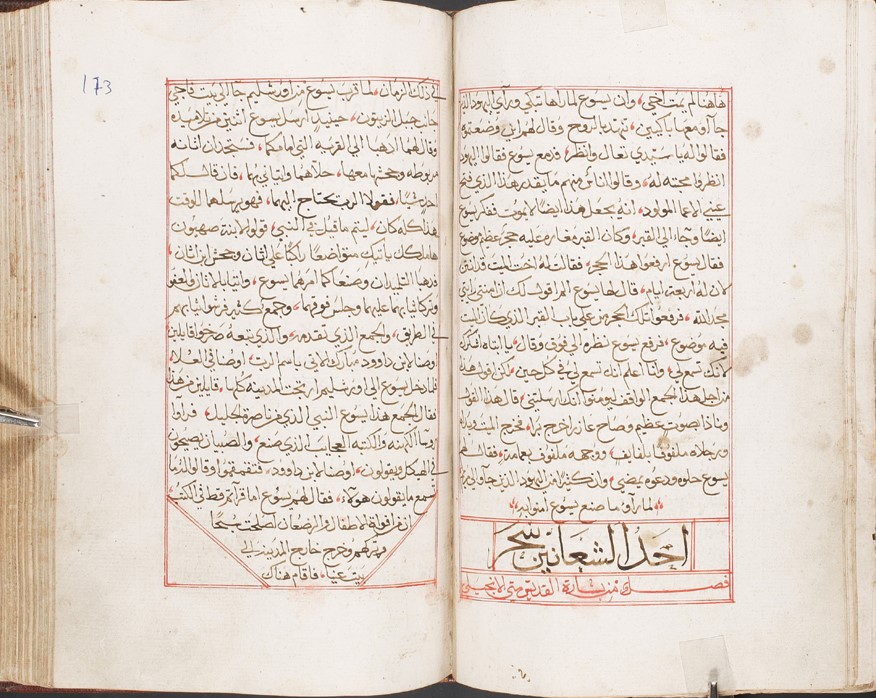 هاهنا لم يمت اخي، وان يسوع لما راها تبكي وراي اليهود الذين
جآاو معها باكيين، تنهد بالروح وقال لهم اين وضعتموه
فقالوا له يا سيدي تعال وانظر، فدمع يسوع فقالوا اليهود
انظروا محبته له، وقالوا اناس منهم ما يقدر هذا الذي فتح
عيني الاعما المولود، انه يجعل هذا ايضا لا يموت ففكر يسوع
ايضا وجاء الي القبر، وكان القبر مغاره عليه حجر عظيم موضوع
فقال يسوع ارفعوا هذا الحجر، فقالت له اخت الميت قد انتن
كان له اربعة ايام، قال لها يسوع الم اقول لك ان امنتي رايتي
مجد الله، فرفعوا تلك الحجر من علي باب القبر الذي كان الميت
فيه موضوع، فرفع يسوع نظره الي فوق وقال، يا ابتاه اشكرك
لانك تسمع لي، وانا اعلم انك تسمع لي في كل حين، لكن اقول هذا
من اجل هذا الجمع الواقف ليومنوا انك ارسلتني، قال هذا القول
ونادا بصوت عظيم وصاح عازر اخرج برا، فخرج الميت ويداه
ورجلاه ملفوفا بلفايف، ووجهه ملفوف بعمامة، فقال لهم
يسوع حلوه ودعوه يمضي، وان كثيرا من اليهود الذين جآا الي
لما راو ما صنع يسوع امنوا به
احد الشعانين سحر
فصل من بشارة القديس متي الانجيلي
173
في ذلك الزمان، لما قرب يسوع من اورشليم جا الي بيت فاجي
جانب جبل الزيتون، حينيذ ارسل يسوع اثنين من تلاميذه
وقال لهما اذهبا الي القريه التي امامكما، فستجدان اتانه
مربوطه وجحش معها، حلاهما واتياني بهما، فان قال لكما
احد شيئا، فقولا الرب يحتاج اليهما، فهو يرسلها للوقت
هذا كله كان، ليتم ما قيل في النبي، قولوا لابنة صهيون
هاملكك ياتيك متواضعا راكبا علي اتان وجحش ابن اتان،
فذهبا التلميذان وصنعا كما امرهما يسوع، واتيا بالاتان والعفو
وتركا ثيابهما عليهما وجلس فوقهما، وجمع كثير فرشوا ثيابهم
في الطرق، والجمع الذي تقدمه، والذي تبعه صرخوا قايلين
اوصنا لابن داوود مبارك الاتي باسم الرب، اوصنا في العلاء
فلما دخل يسوع الي اورشليم ارتجت المدينه كلها، قايلين من هذا
فقال الجمع هذا يسوع النبي الذي من ناصرة الجليل، فراوا
روسا الكهنه والكتبه العجايب الذي صنع، والصبيان يصيحون
في الهيكل ويقولون، اوصنا لابن داوود، فتقمقموا وقالوا له اما
تسمع ما يقولون هولاء، فقال لهم يسوع اما قراتم قط في الكتب
ان من افواه الاطفال والرضعان اصلحت سبحا
فتركهم وخرج خارج المدينه الي
بيت عنيا، فاقام هناك